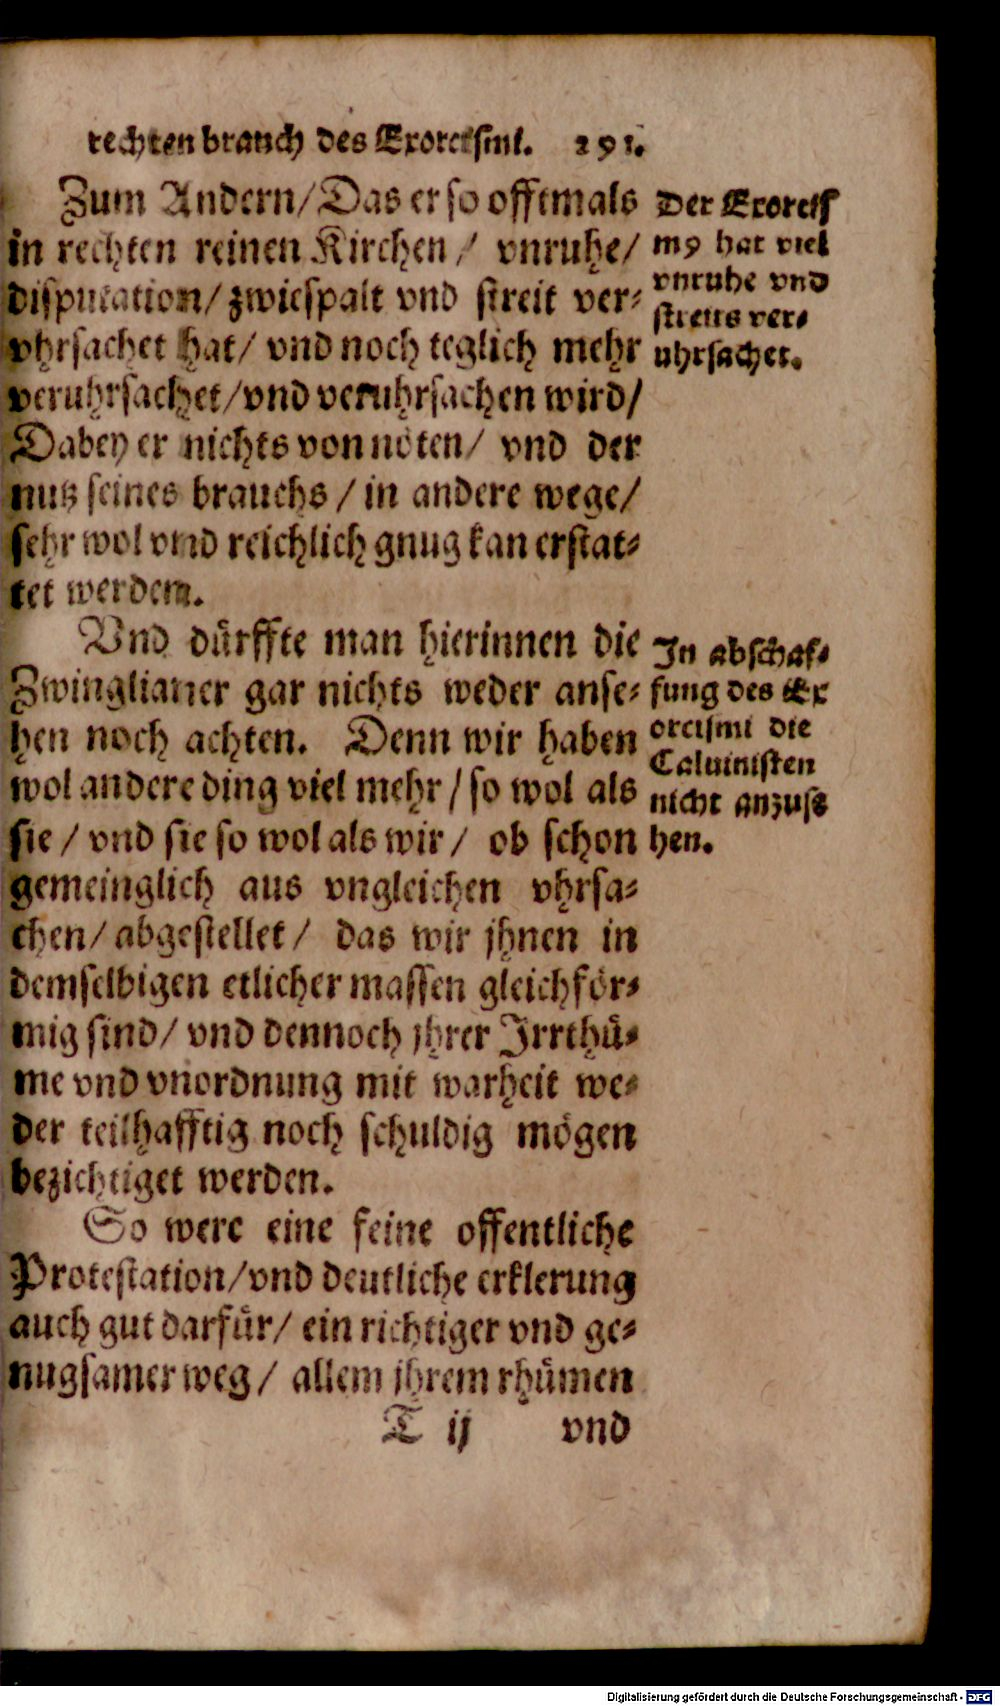 rechten brauch des Exorcismi. 291.
Zum Andern/ Das er so offtmals
in rechten reinen Kirchen / vnruhe/
disputation/ zwiespalt vnd streit ver-
vhrsachet hat/ vnd noch teglich mehr
veruhrsachet/ vnd veruhrsachen wird/
Dabey er nichts von nöten/ vnd der
nutz seines brauchs / in andere wege/
sehr wol vnd reichlich gnug kan erstat-
tet werdem.
Der Exorcis
mꝰ hat viel
vnruhe vnd
streits ver-
uhrsachet.
Vnd dürffte man hierinnen die
Zwinglianer gar nichts weder anse-
hen noch achten. Denn wir haben
wol andere ding viel mehr / so wol als
sie / vnd sie so wol als wir / ob schon
gemeinglich aus vngleichen vhrsa-
chen/ abgestellet / das wir jhnen in
demselbigen etlicher massen gleichför-
mig sind/ vnd dennoch jhrer Irrthü-
me vnd vnordnung mit warheit we-
der teilhafftig noch schuldig mögen
bezichtiget werden.
In abschaf-
fung des Ex
orcismi die
Caluinisten
nicht anzuse
hen.
So were eine feine offentliche
Protestation/ vnd deutliche erklerung
auch gut darfür/ ein richtiger vnd ge-
nugsamer weg / allem jhrem rhümen
T ij vnd
Digitalisierung gefördert durch die Deutsche Forschungsgemeinschaft - DFG